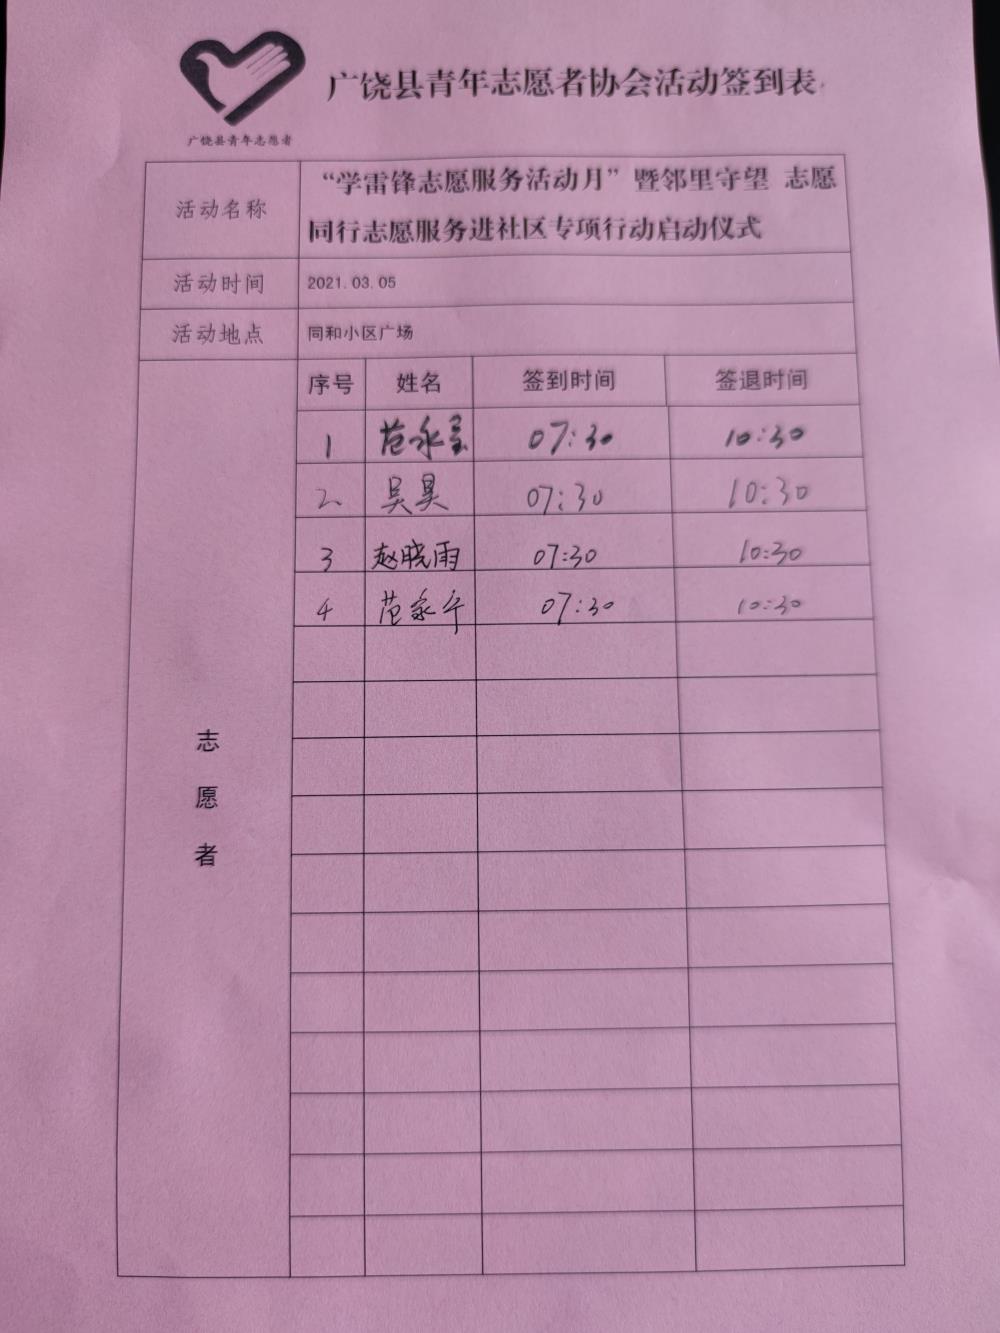 广饶县青年志愿者协会活动签到表
广饶县青年志愿者
活动名称
“学雷锋志愿服务活动月”暨邻里守望 志愿
同行志愿服务进社区专项行动启动仪式
活动时间 2021.03.05
活动地点 同和小区广场
序号 姓名 签到时间 签退时间
1 范永 07:30 10:30
2 吴昊 07:30 10:30
3 赵晓雨 07:30 10:30
4 范家 07:30 10:30
志
愿
者